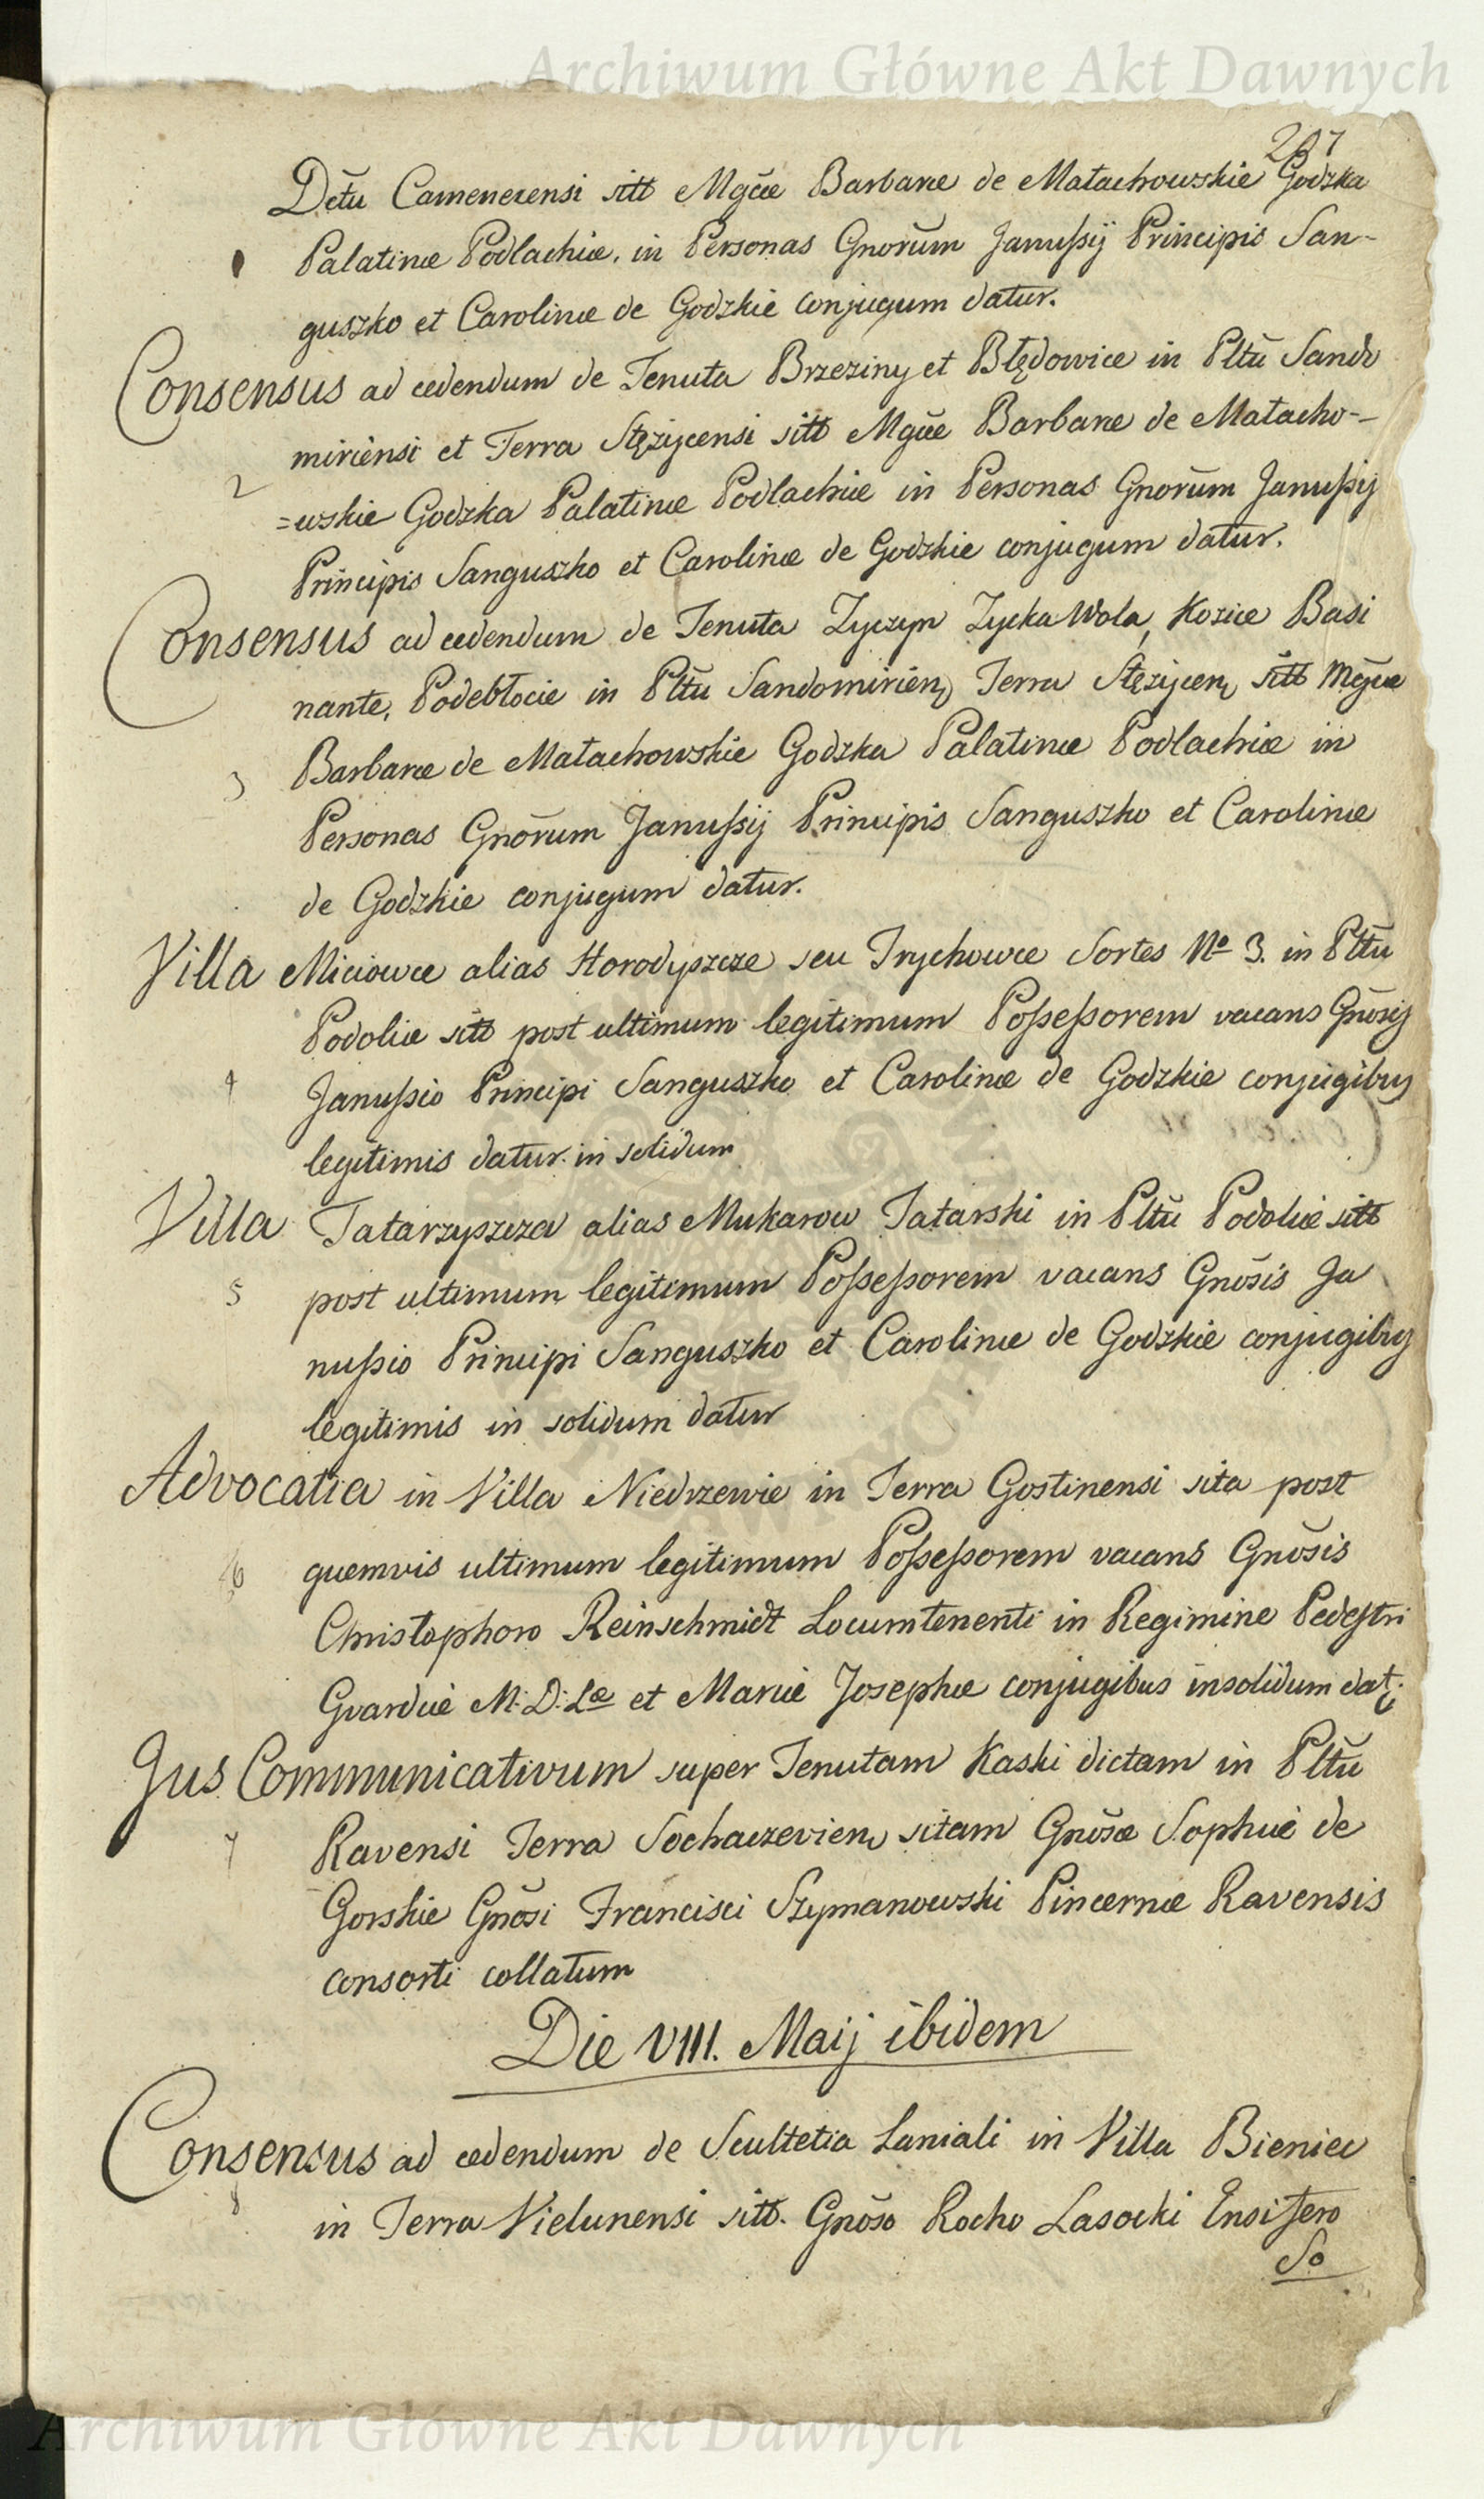 Archiwum Główne Akt Dawnych
207
Dctũ Camenecensi sitt Mgcæ Barbaræ de Małachowskie Godzka
1 Palatinæ Podlachiæ, in Personas Gnorũm Janußij Principis San-
guszko et Carolinæ de Godzkie conjugum datur.
Consensus ad cedendum de Tenuta Brzeziny et Błędowice in Pltũ Sando
miriensi et Terra Stężycensi sitt Mgcæ Barbaræ de Małacho-
2 =wskie Godzka Palatinæ Podlachiæ in Personas Gnorũm Janußij
Principis Sanguszko et Carolinæ de Godzkie conjugum datur.
Consensus ad cedendum de Tenuta Zyczyn Zycka Wola, Kozice Basi
nante, Podebłocie in Pltũ Sandomirien, Terra Stężycen, sitt Mgcæ
3 Barbaræ de Małachowskie Godzka Palatinæ Podlachiæ in
Personas Gnorũm Janußij Principis Sanguszko et Carolinæ
de Godzkie conjugum datur.
Villa Miciowce alias Horodyszcze seu Trychowce Sortes No 3. in Pltũ
Podoliæ sitt post ultimum legitimum Poßeßorem vacans Gnosis
4 Janußio Principi Sanguszko et Carolinæ de Godzkie conjugibus
legitimis datur in solidum
Villa Tatarzyszcza alias Mukarow Tatarski in Pltũ Podoliæ sitt
5 post ultimum legitimum Poßeßorem vacans Gnosis Ja
nußio Principi Sanguszko et Carolinæ de Godzkie conjugibus
legitimis in solidum datur
Advocatia in Villa Niedrzewie in Terra Gostinensi sita post
6 quemvis ultimum legitimum Poßeßorem vacans Gnosis
Christophoro Reinschmidt Locumtenenti in Regimine Pedestri
Gvardiæ M: D: Læ et Mariæ Josephæ conjugibus insolidum dat;
Jus Communicativum super Tenutam Kaski dictam in Pltũ
7 Ravensi Terra Sochaczevien, sitam Gnosæ Sophiæ de
Gorskie Gnosi Francisci Szymanowski Pincernæ Ravensis
consorti collatum
Die VIII. Maij ibidem
Consensus ad cedendum de Scultetia Laniali in Villa Bieniec
8 in Terra Vielunensi sitt. Gnoso Rocho Lasocki Ensifero
So
Archiwum Główne Akt Dawnych